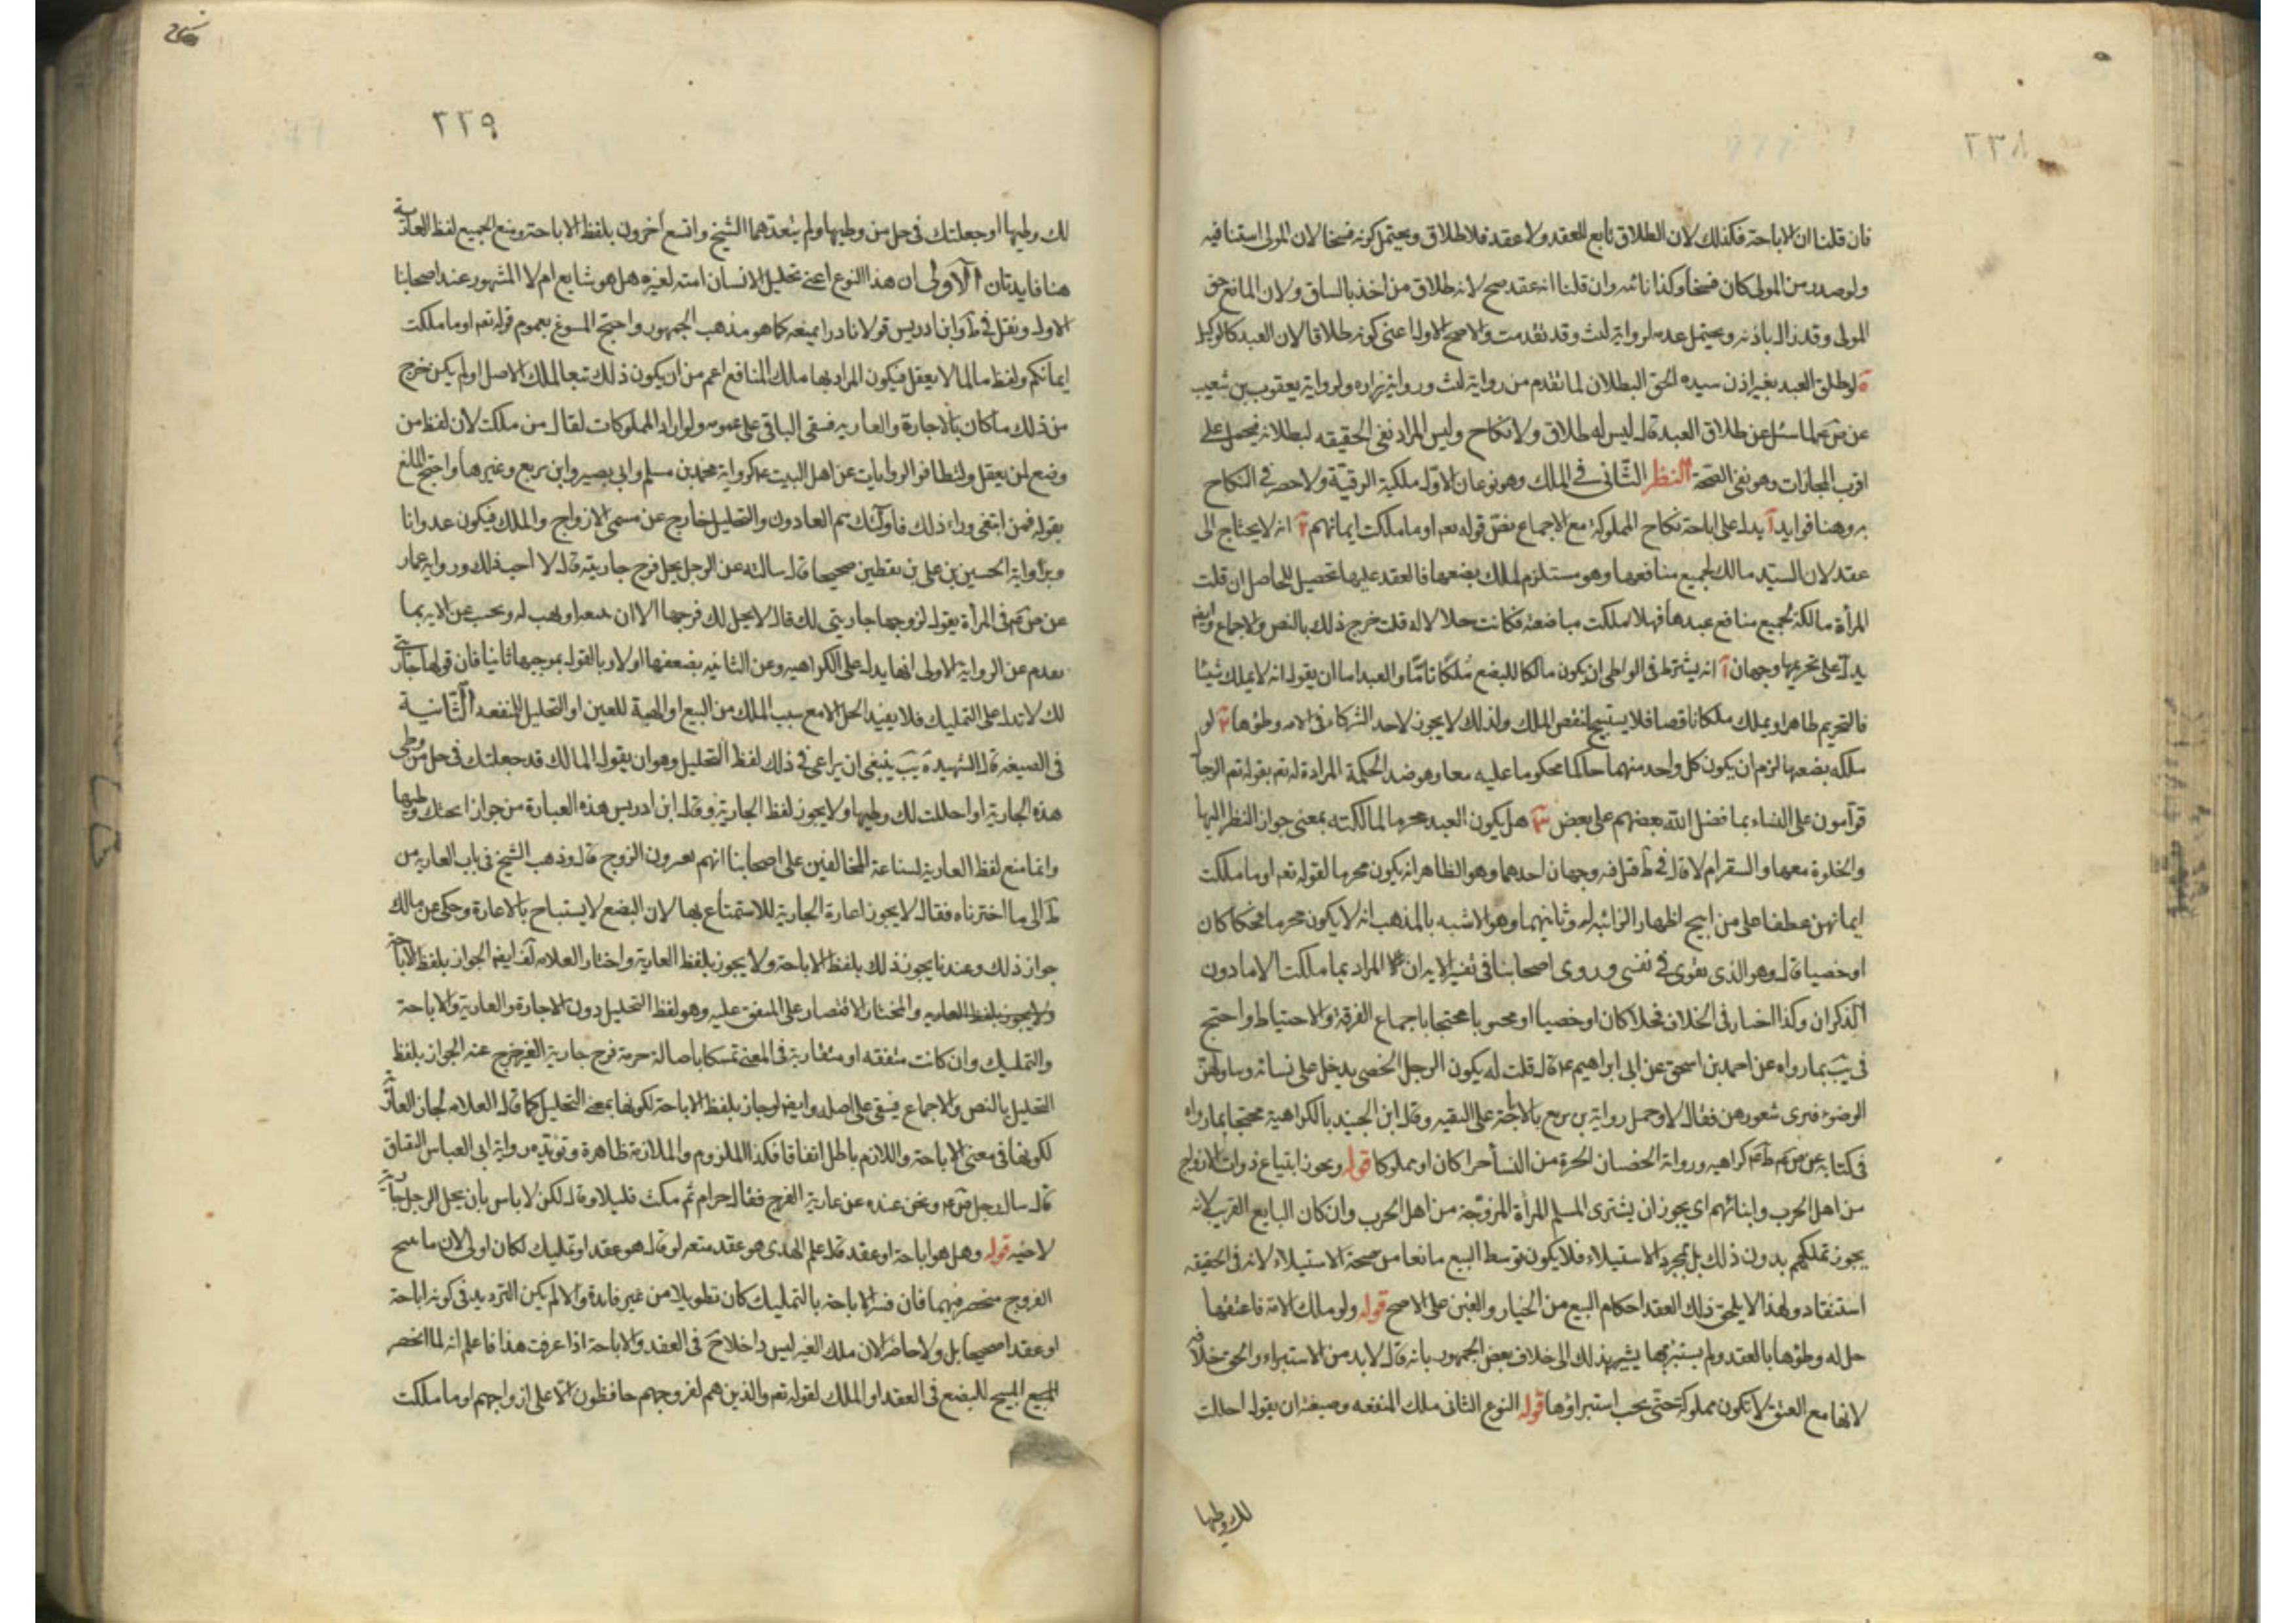 ٢٣٨
فان قلنا ان الاباحة فكذلك لان الطلاق تابع للعقد ولا عقد فلا طلاق ويحتمل كونه فسخا لان المولى استنا فيه
ولو صدر من المولى كان فسخا وكذا نائبه وان قلنا انه عقد صح لانه طلاق من اخذ بالساق ولان المانع حق
المولى وقد زال باذنه ويحتمل عدمه لرواية ليث وقد تقدمت والاصح الاول اعنى كونه طلاقا لان العبد كالوكيل
ة لو طلق العبد بغير اذن سيده الحق البطلان لما تقدم من رواية ليث ورواية زراره ولرواية يعقوب بن شعيب
عن ص لما سئل عن طلاق العبد قال ليس له طلاق ولا نكاح وليس المراد نفى الحقيقه لبطلانه فيحمل على
اقرب المجازات وهو نفى الصحة النظر الثانى فى الملك وهو نوعان الاول ملكية الرقبة ولا حصر فى النكاح
به وهنا فوايد آ يدل على اباحة نكاح المملوكة مع الاجماع نص قوله تعه او ما ملكت ايمانهم ٢ انه لا يحتاج الى
عقد لان السيد مالك لجميع منافعها وهو مستلزم لملك بضعها فالعقد عليها تحصيل للحاصل ان قلت
المرأة مالكة لجميع منافع عبدها فهلا ملكت مباضعته فكانت حلالا له قلت خرج ذلك بالنص والاجماع وايضا
يدل على تحريمها وجهان آ انه يشترط فى الواطى ان يكون مالكا للبضع ملكا تاما والعبد اما ان يقول انه لا يملك شيئا
فالتحريم ظاهر او يملك ملكا ناقصا فلا يستبيح لنقص الملك ولذلك لا يجوز لاحد الشركاء فى الامه وطؤها ٢ لو
ملكه بضعها لزم ان يكون كل واحد منهما حاكما محكوما عليه معا وهو ضد الحكمة المرادة له تعه بقوله تعه الرجال
قوامون على النساء بما فضل الله بعضهم على بعض ٣ هل يكون العبد محرما لمالكته بمعنى جواز النظر اليها
والخلوة معها والسفر ام لا قال فى ط قيل فيه وجهان احدهما وهو الظاهر انه يكون محرما لقوله تعه او ما ملكت
ايمانهن عطفا على من ابيح اظهار الزائنه له وثانيهما وهو الاشبه بالمذهب انه لا يكون محرما فحكا كان
او خصيا قال وهو الذى يقوى فى نفسى وروى اصحابنا فى تفسير الايه ان المراد بما ملكت الاماء دون
الذكران وكذا اختار فى الخلاف فحلا كان او خصيا او محبوبا محتجا باجماع الفرقة والاحتياط واحتج
فى يب بما رواه عن احمد بن اسحق عن ابى ابراهيم ع قال قلت له يكون الرجل الخصى يدخل على نسائه وينا ولهن
الوضوء فيرى شعورهن فقال لا وحمل رواية بن بزيع بالاباحة على التقيه وقال ابن الجنيد بالكراهية محتجا بما رواه
فى كتابه عن ص ع كراهيه ورواية الخصيان الحرة من النساء حرا كان او مملوكا قوله ويجوز ابتياع ذوات الازواج
من اهل الحرب وابنائهم اى يجوز ان يشترى المسلم المرأة المزوجة من اهل الحرب وان كان البايع القريب لانه
يجوز تملكهم بدون ذلك بل بمجرد الاستيلاء فلا يكون توسط البيع مانعا من صحة الاستيلاء لانه فى الحقيقه
استنقاذ ولهذا لا يلحق ذلك العقد احكام البيع من الخيار والغبن على الاصح قوله ولو ملك الامة فاعتقها
حل له وطؤها بالعقد ولم يستبرئها يشير بذلك الى خلاف بعض الجمهور بانه قال لا بد من الاستبراء والحق خلافه
لانها مع العتق لا تكون مملوكة حتى يجب استبراؤها قوله النوع الثانى ملك المنفعه وصيغته ان يقول احللت
لك وطيها
٢٢٩
لك وطيها او جعلتك فى حل من وطيها ولم يتعدهما الشيخ واتسع آخرون بلفظ الاباحة ومنع الجميع لفظ العارية
هنا فايدتان الاولى ان هذا النوع اعنى تحليل الانسان امته لغيره هل هو شايع ام لا المشهور عند اصحابنا
الاول ونقل فى ط وابن ادريس قولا نادرا بمنعه كما هو مذهب الجمهور واحتج المسوغ بعموم قوله تعه او ما ملكت
ايمانكم ولفظ ما لما لا يعقل فيكون المراد بها ملك المنافع اعم من ان يكون ذلك تبعا لملك الاصل او لم يكن خرج
من ذلك ما كان بالاجارة والعاريه فبقى الباقى على عمومه ولو اراد المملوكات لقال من ملكت لان لفظ من
وضع لمن يعقل ولتظافر الروايات عن اهل البيت ع كرواية محمد بن مسلم وابى بصير وابن بزيع وغيرها واحتج المانع
بقوله فمن ابتغى وراء ذلك فاولئك هم العادون والتحليل خارج عن مسمى الازواج والملك فيكون عدوانا
وبرواية الحسين بن على بن يقطين صحيحا قال سالته عن الرجل يحل فرج جاريته قال لا احب ذلك ورواية عمار
عن ص ع فى المرأة يقول لزوجها جاريتى لك قال لا يحل لك فرجها الا ان تبيعه او تهب له ونجيب عن الايه بما
تقدم عن الرواية الاولى انها يدل على الكراهيه وعن الثانيه بضعفها اولا وبالقول بموجبها ثانيا فان قولها جاريتى
لك لا تدل على التمليك فلا يفيد الحل الا مع سبب الملك من البيع او الهبة للعين او التحليل للمنفعه الثانية
فى الصيغة قال الشهيد ة يب ينبغى ان يراعى فى ذلك لفظ التحليل وهو ان يقول المالك قد جعلتك فى حل من وطى
هذه الجارية او احللت لك وطيها ولا يجوز لفظ الجارية وقال ابن ادريس هذه العبارة من جواز ابحتك وطيها
وانما منع لفظ العارية لشناعة المخالفين على اصحابنا انهم يعيرون الزوج قال وذهب الشيخ فى باب العاريه من
ط الى ما اخترناه فقال لا يجوز اعارة الجارية للاستمتاع بها لان البضع لا يستباح بالاعارة وحكى عن مالك
جواز ذلك وعندنا يجوز ذلك بلفظ الاباحة ولا يجوز بلفظ العارية واختار العلامه ايضا الجواز بلفظ الاباحة
ولا يجوز بلفظ العاريه والمختار الاقتصار على المتفق عليه وهو لفظ التحليل دون الاجارة والعارية والاباحة
والتمليك وان كانت متفقه او متقاربة فى المعنى تمسكا باصالة حرمة فرج جارية الغير خرج عنه الجواز بلفظ
التحليل بالنص والاجماع فيبقى على اصله وايضا لو جاز بلفظ الاباحة لكونها بمعنى التحليل كما قال العلامه لجاز العارية
لكونها فى معنى الاباحة واللازم باطل اتفاقا فكذا الملزوم والملازمة ظاهرة وتؤيده رواية ابى العباس البقباق
قال سال رجل ص ع ونحن عنده عن عارية الفرج فقال حرام ثم مكث قليلا وقال لكن لا باس بان يحل الرجل جاريته
لاخيه قوله وهل هو اباحة او عقد قال علم الهدى هو عقد متعه لو قال هو عقد او تمليك لكان اولى لان ما يبيح
الفروج منحصر فيهما فان فسر الاباحة بالتمليك كان تطويلا من غير فايدة والا لم يكن الترديد فى كونه اباحة
او عقد اصحيحا بل ولا حاضرا لان ملك الغير ليس داخلا ح فى العقد والاباحة اذا عرفت هذا فاعلم انه لما انحصر
المبيح للبضع فى العقد او الملك لقوله تعه والذين هم لفروجهم حافظون الا على ازواجهم او ما ملكت